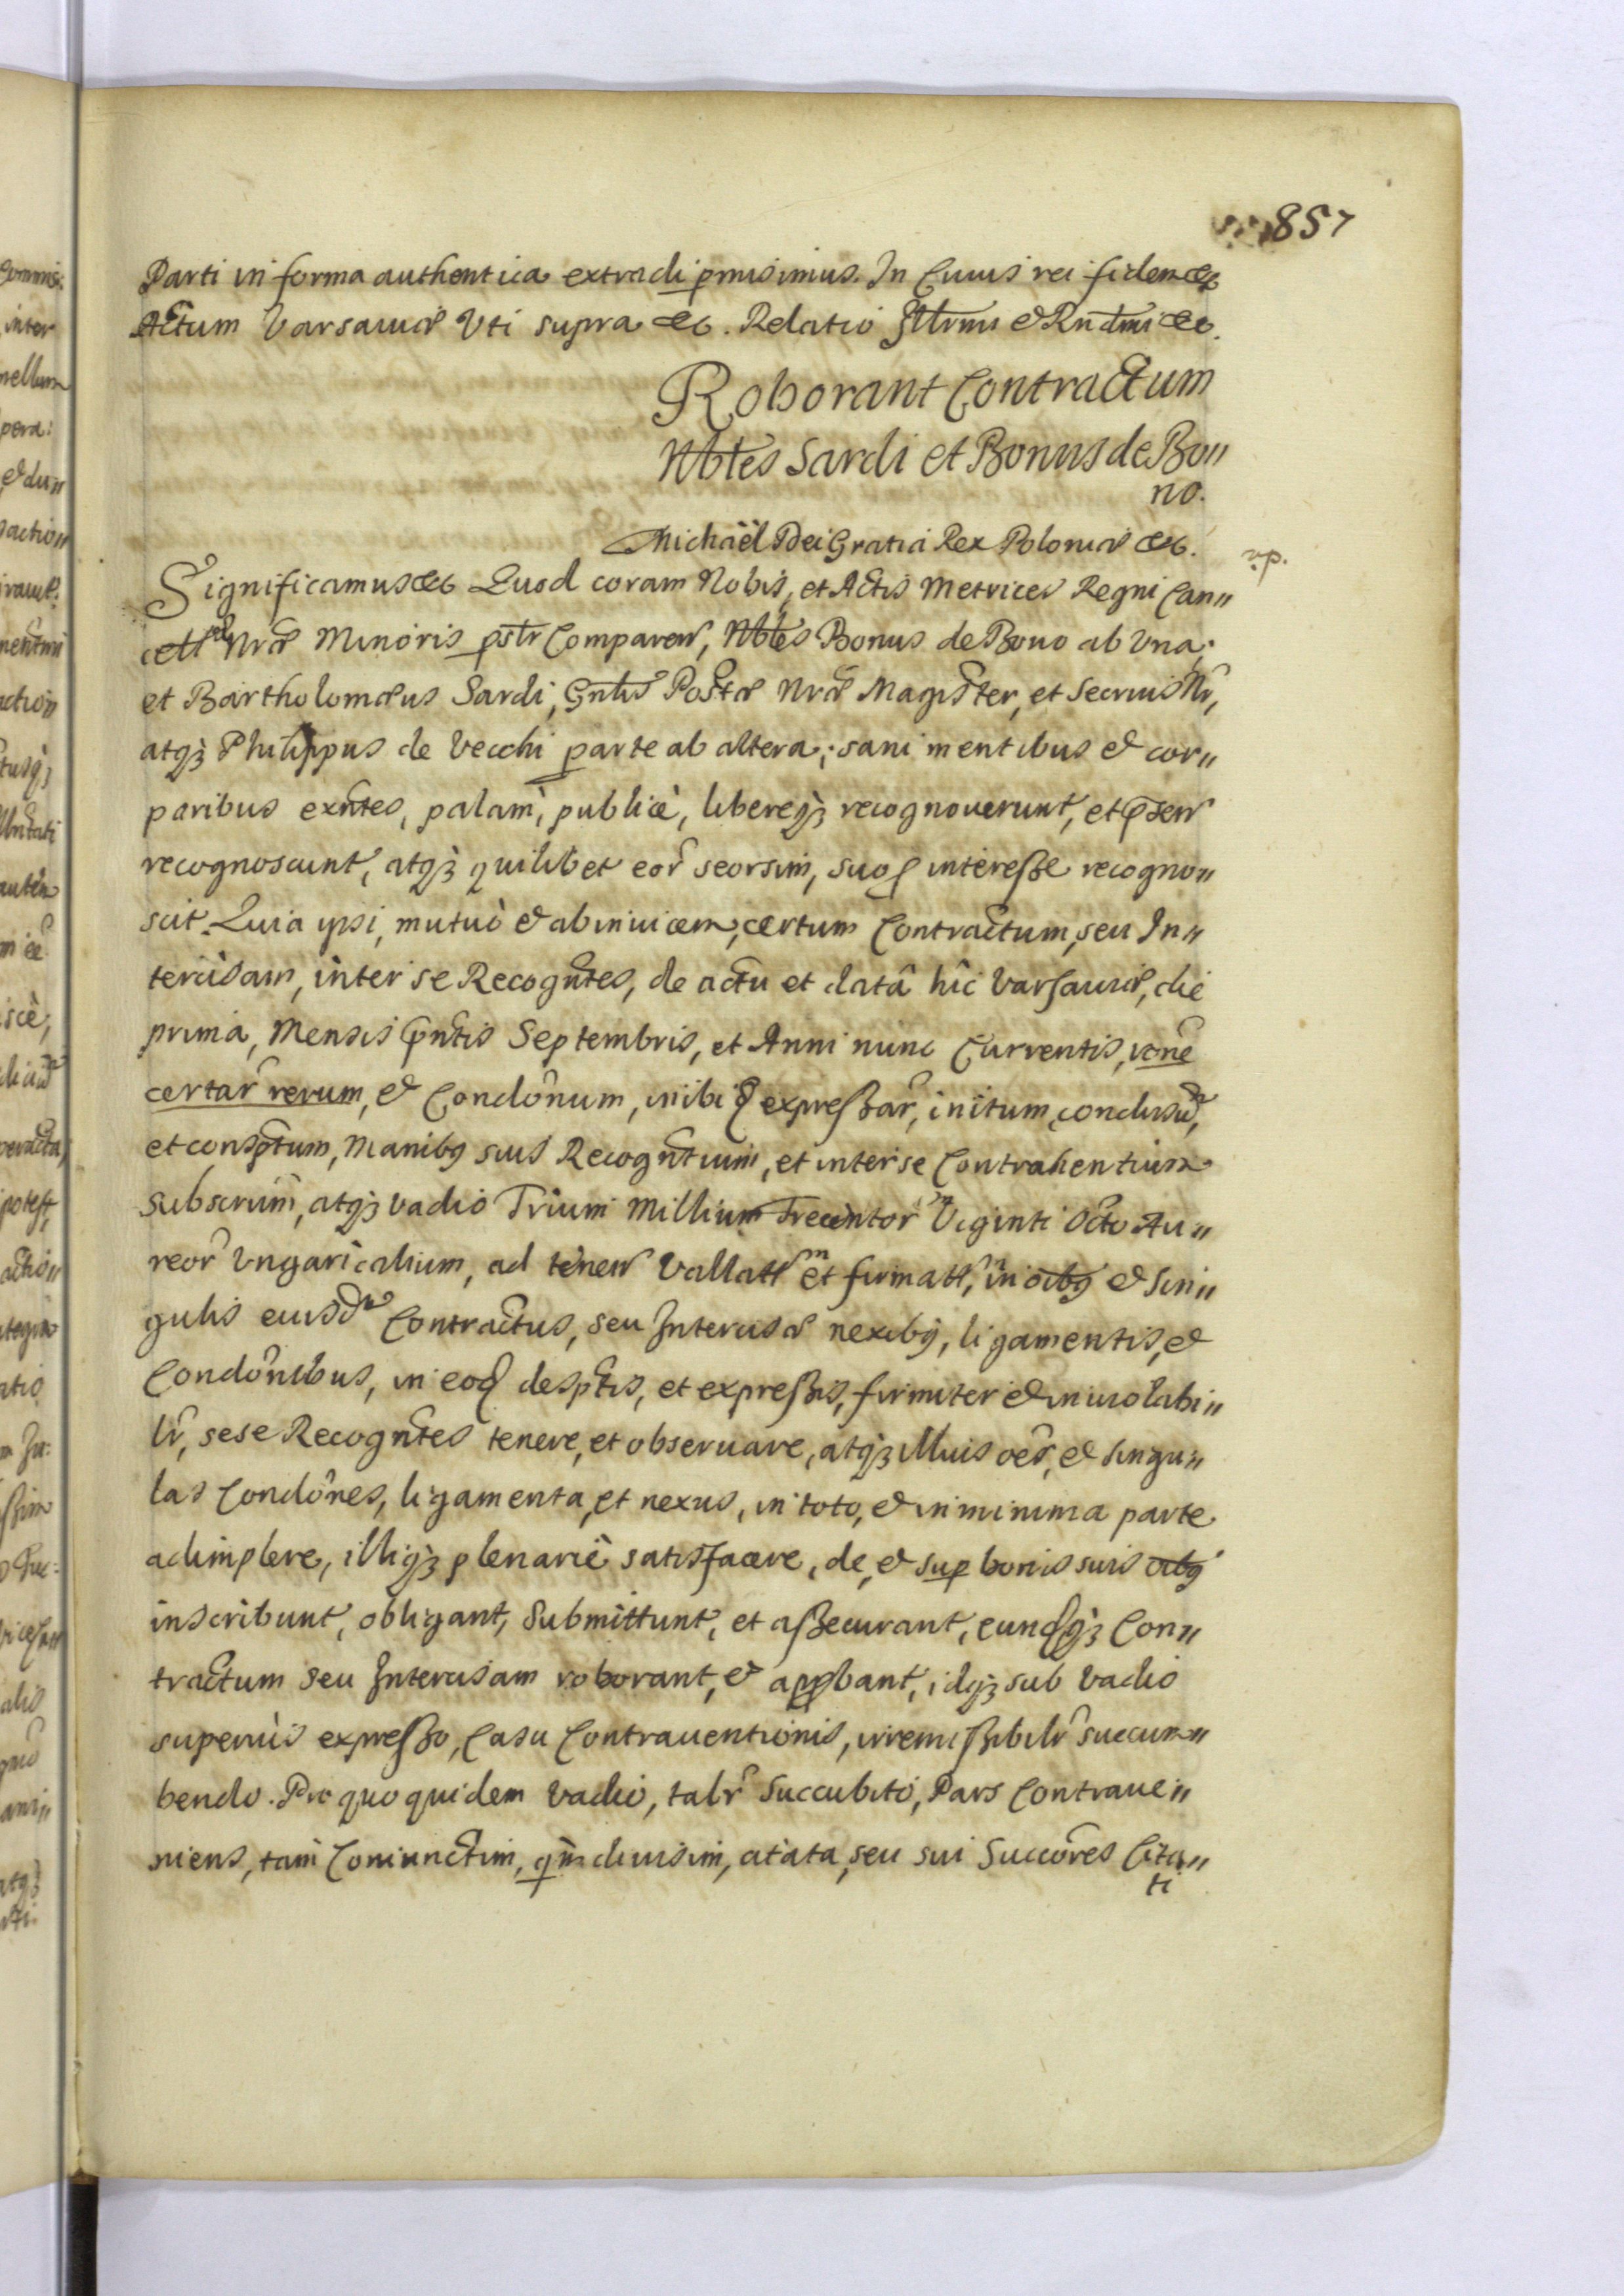 857
Parti in forma authentica extradi pmisimus. In Cuius rei fidem &c
Actum Varsaviæ Vti supra &c. Relatio Illrmi & Rndmi &c.
Roborant Contractum
Nbles Sardi et Bonus de Bo„
no.
Michaël Dei Gratia Rex Poloniæ &c.
Significamus &c Quod coram Nobis, et Actis Metrices Regni Can„
cell Nræ Minoris pstr Comparen, Nbles Bonus de Bono ab Vna;
et Bartholomæus Sardi, Gnlis Postæ Nræ Magister, et Secrius Nr,
atq3 Philippus de Vecchi parte ab altera; sani mentibus & cor„
paribus exntes, palam, publicè, libereq3 recognouerunt, et psen
recognoscunt, atq3 quilibet eor seorsim, suo interesse recogno„
scit. Quia ipsi, mutuò & ab inuicem, certum Contractum, seu In„
tercisam, inter se Recogntes, de actu et datâ hîc Varsauiæ, die
prima, Mensis pntis Septembris, et Anni nunc Currentis, rône
certar rerum, & Condônum, inibi expressar, initum, conclusu,
et consptum, Manibq suis Recogntium, et inter se Contrahentium
subscrim, atq3 vadio Trium Millium Trecentor Viginti Octo Au„
reor Vngaricalium, ad tenen Vallatt et firmatt, in oibq & sin„
gulis eiusd Contractus, seu Intercisæ nexibq, ligamentis, &
Condônibus, in eod desptis, et expressis, firmiter & inuiolabi„
lr, sese Recogntes tenere, et obseruare, atq3 illius oes, & singu„
las Condônes, ligamenta, et nexus, in toto, & in minima parte
adimplere, illiq3 plenariè satisfacere, de, & sup bonis suis oibq
inscribunt, obligant, Submittunt, et assecurant, eundq3 Con„
tractum seu Intercisam roborant, & appbant, idq3 sub Vadio
superiùs expresso, Casu Contrauentionis, irremissibilr succum„
bendo. Pro quo quidem Vadio, talr Succubito, Pars Contraue„
niens, tam Coniunctim, qm diuisim, atata, seu sui Succores Cita„
ti